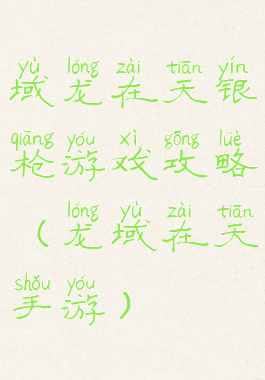 yù lóng zài tiān yín
域龙在天银
qiāng yóu xì gōng lüè
枪游戏攻略
lóng yù zài tiān
（龙域在天
shǒu yóu
手游）